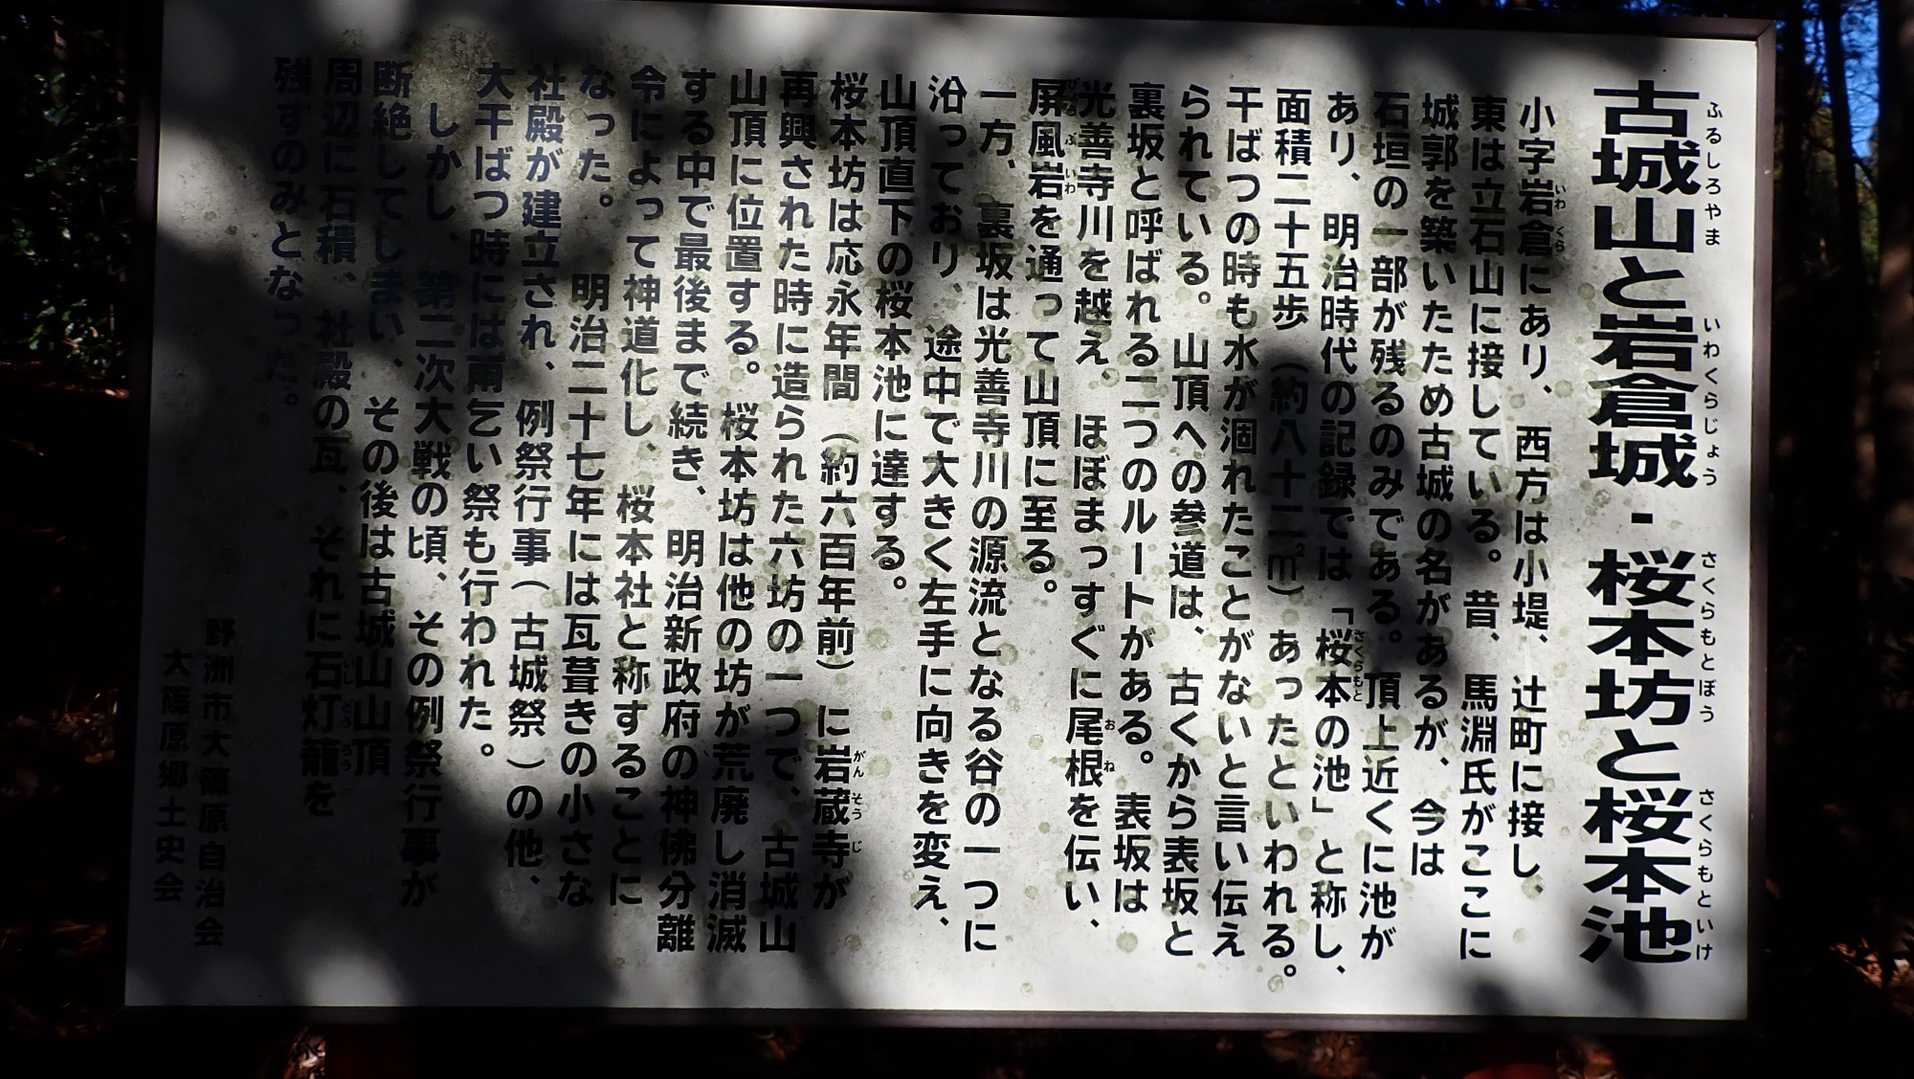 古城山と岩倉城・桜本坊と桜本池
ふるしろやま いわくらじょう さくらもとぼう さくらもといけ
小字岩倉にあり、西方は小堤、辻町に接し、
いわ くら
東は立石山に接している。昔、馬淵氏がここに
城郭を築いたため古城の名があるが、今は
石垣の一部が残るのみである。頂上近くに池が
あり、明治時代の記録では「桜本の池」と称し、
さくらもと
面積二十五歩（約八十二㎡）あったといわれる。
干ばつの時も水が涸れたことがないと言い伝え
られている。山頂への参道は、古くから表坂と
裏坂と呼ばれる二つのルートがある。表坂は
光善寺川を越え、ほぼまっすぐに尾根を伝い、
お ね
屏風岩を通って山頂に至る。
びょう ぶ いわ
一方、裏坂は光善寺川の源流となる谷の一つに
沿っており、途中で大きく左手に向きを変え、
山頂直下の桜本池に達する。
桜本坊は応永年間（約六百年前）に岩蔵寺が
がん ぞう じ
再興された時に造られた六坊の一つで、古城山
山頂に位置する。桜本坊は他の坊が荒廃し消滅
する中で最後まで続き、明治新政府の神佛分離
令によって神道化し、桜本社と称することに
なった。明治二十七年には瓦葺きの小さな
社殿が建立され、例祭行事（古城祭）の他、
大干ばつ時には雨乞い祭も行われた。
しかし、第二次大戦の頃、その例祭行事が
断絶してしまい、その後は古城山山頂
周辺に石積、社殿の瓦、それに石灯籠を
いし どう ろう
残すのみとなった。
野洲市大篠原自治会
大篠原郷土史会